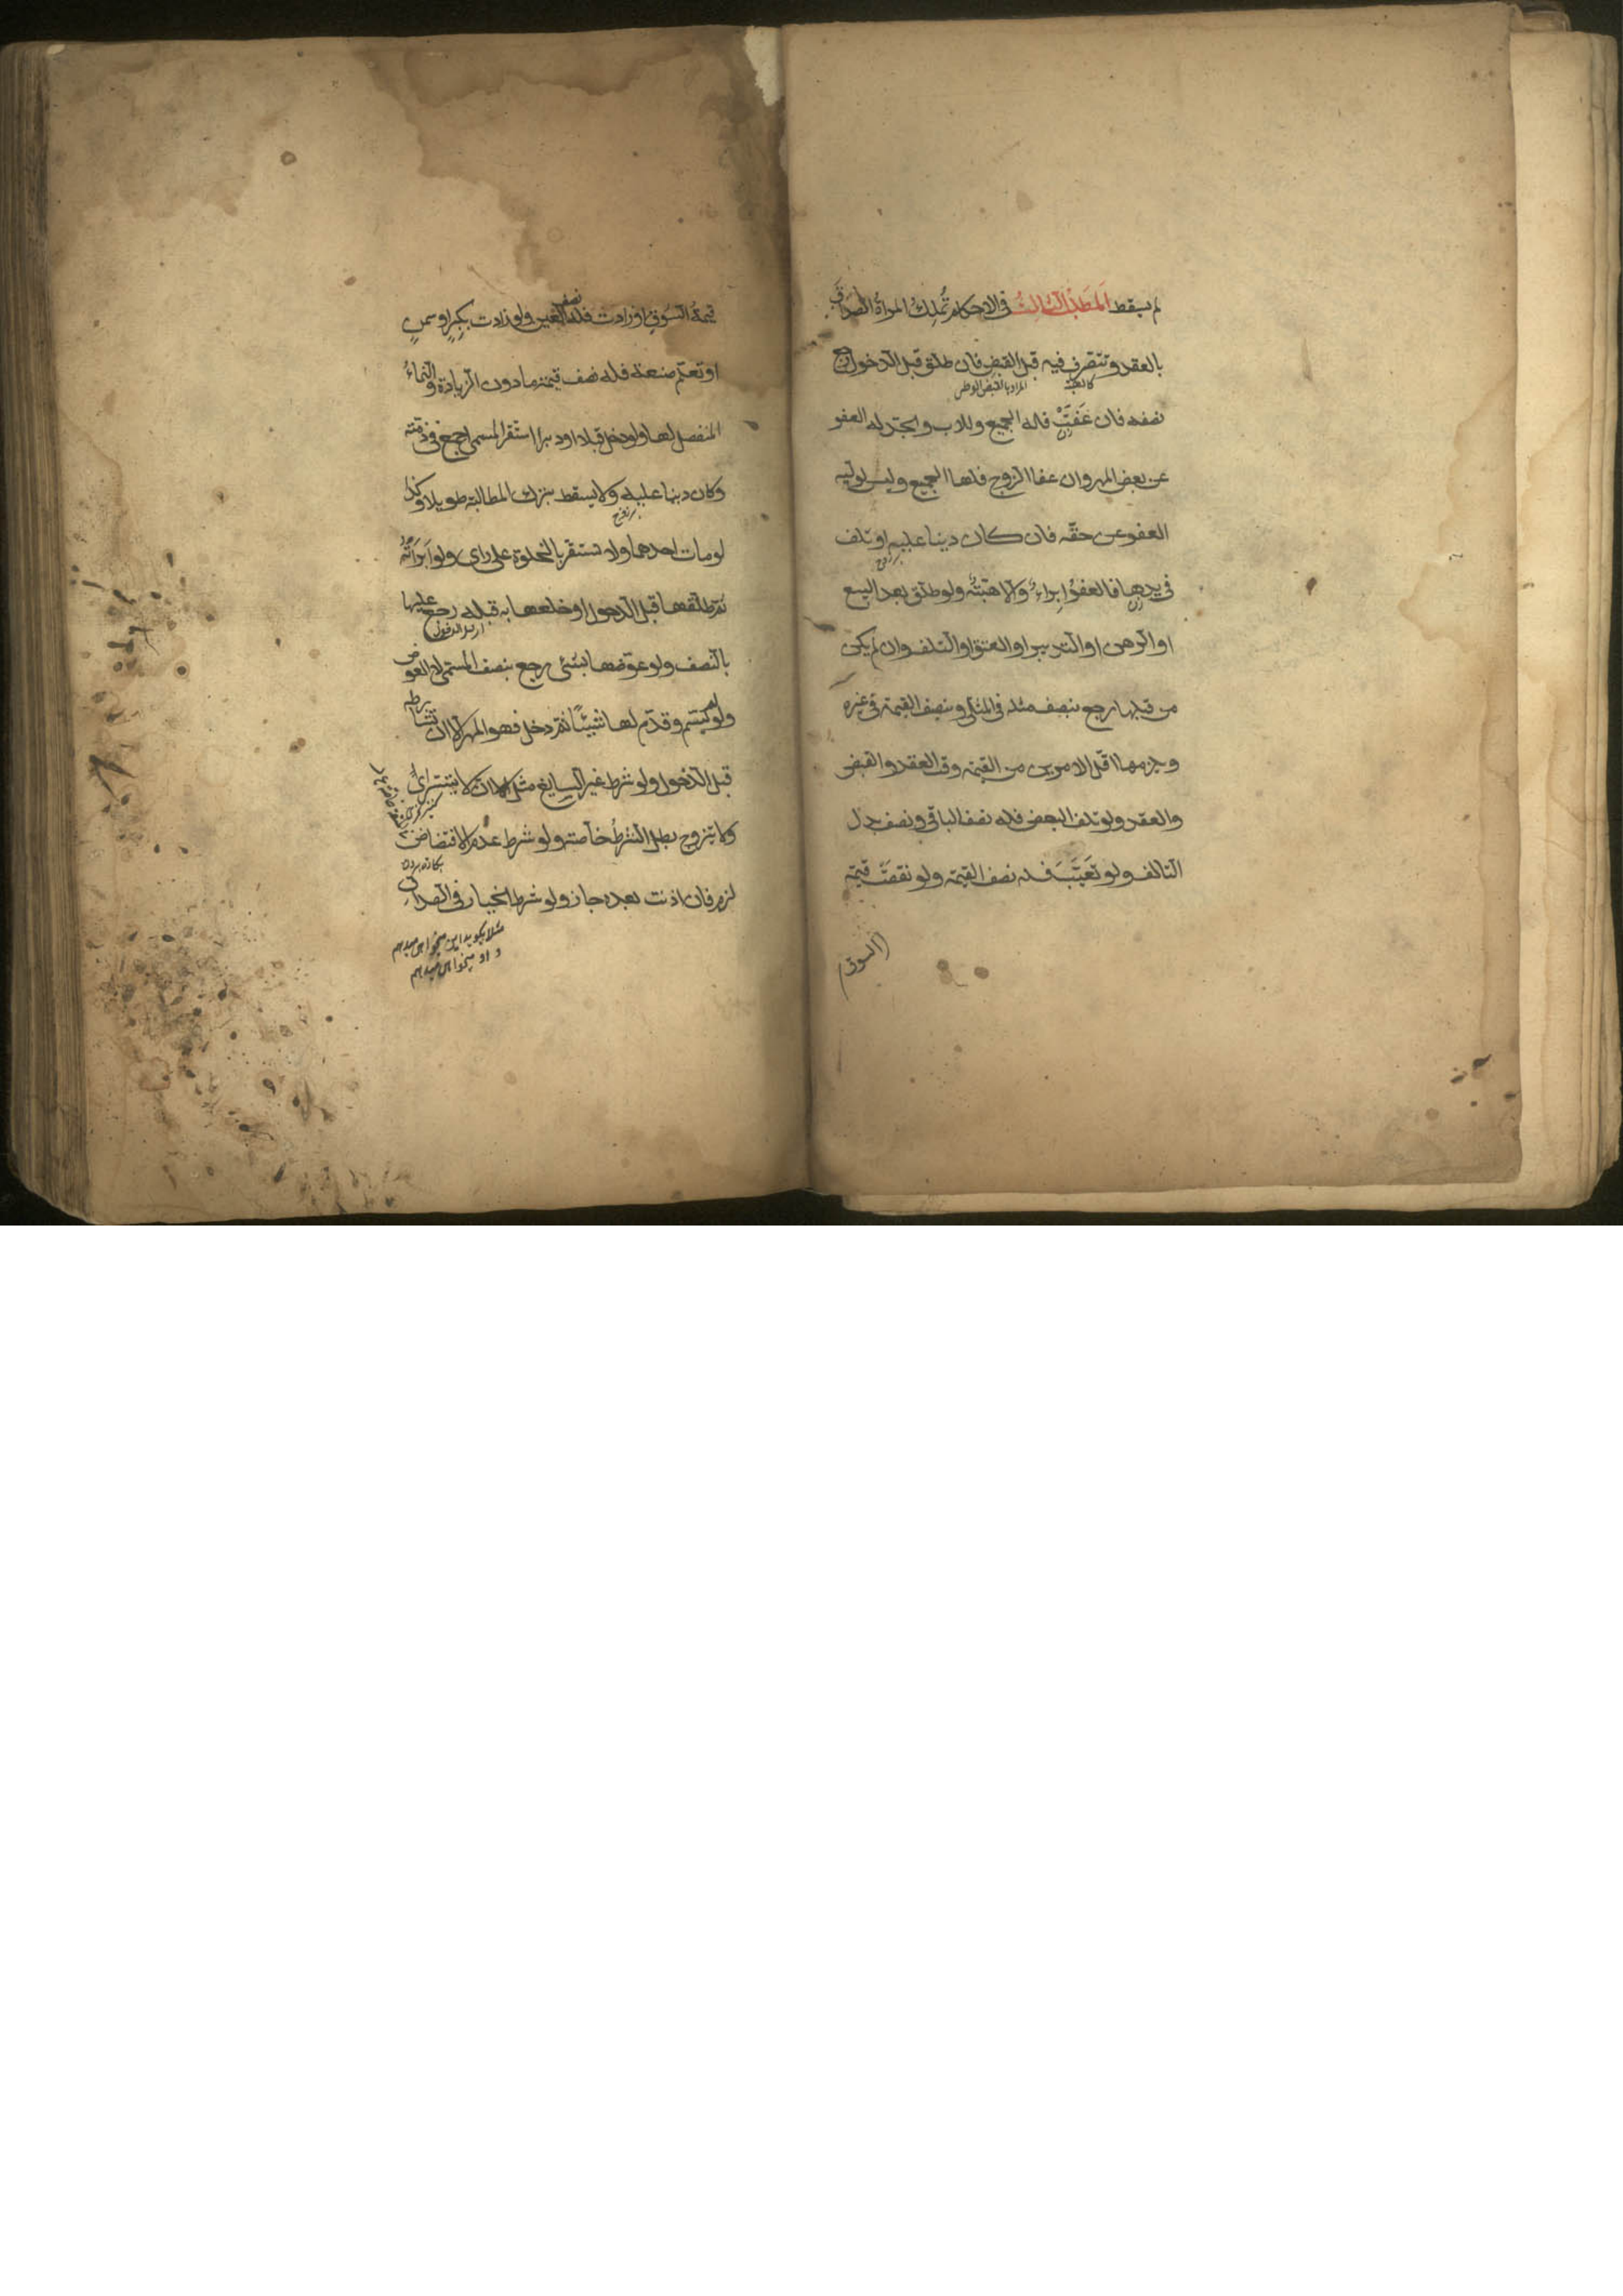 لم يسقط اَلمَطلَبُ الثّالِثُ فى الاحكام تُملِكُ المراةُ الصّداقَ
بالعقد وتتصرف فيه قبل القبض فان طلق قبل الدخول رجع
المراد بالقبض الوطى
نصفه فان عَفَتَّ فله الجميع وللاب والجدّ له العفو
عن بعض المهر وان عفا الزوج فلها الجميع وليس لوليه
العفو عن حقّه فان كان دينا عليه او تلف
فى يدها فالعفوُ اِبراءٌ والا هبتٌه ولو طلّق بعد البيع
او الرهن او التدبير او العتق او التلف وان لم يكن
من قبلها رجع بنصف مثله فى المثلى وبنصف القيمة فى غيره
وجزمها اقل الامرين من القيمة وقت العقد والقبض
والعقد ولو تلف البعض فله نصف الباقى ونصف بدل
التالف ولو تَعَيَّبَ فله نصف القيمة ولو نقصَتْ قيمة
(السوق)
قيمةُ السّوقِ او زادت فله نصف العين ولو زادت بكبرٍ او سمنٍ
او تعلّم صنعة فله نصف قيمتها دون الزيادة والنّماءُ
المنفصل لها ولو دخل قبلا او دبرا استقر المسمى اجمع فى ذمته
وكان دينا عليه ولا يسقط بترك المطالبة طويلا وكذا
بر زوج
لو مات احدهما ولا تستقر بالخلوة على راى ولو اَبرَأتهُ
ثمّ طلّقها قبل الدخول او خلعها به قبله رجع عليها
اى قبل الدخول
بالنصف ولو عوّضها بشئى رجع بنصف المسمى لا العوض
ولو لم يسّم وقدّم لها شيئًا ثمّ دخل فهو المهر الا ان تشارطه
قبل الدخول ولو شرط غير السايغ مثل ان لا يتسرى
ولا يتزوج بطل الشرطُ خاصّة ولو شرط عدم الافتضاض
بكارة بردن
لزم فان اذنت بعده جاز ولو شرط الخيار فى الصداق
مثلا بگويد اين ميخواهى ميدهم
و او ميخواهى ميدهم